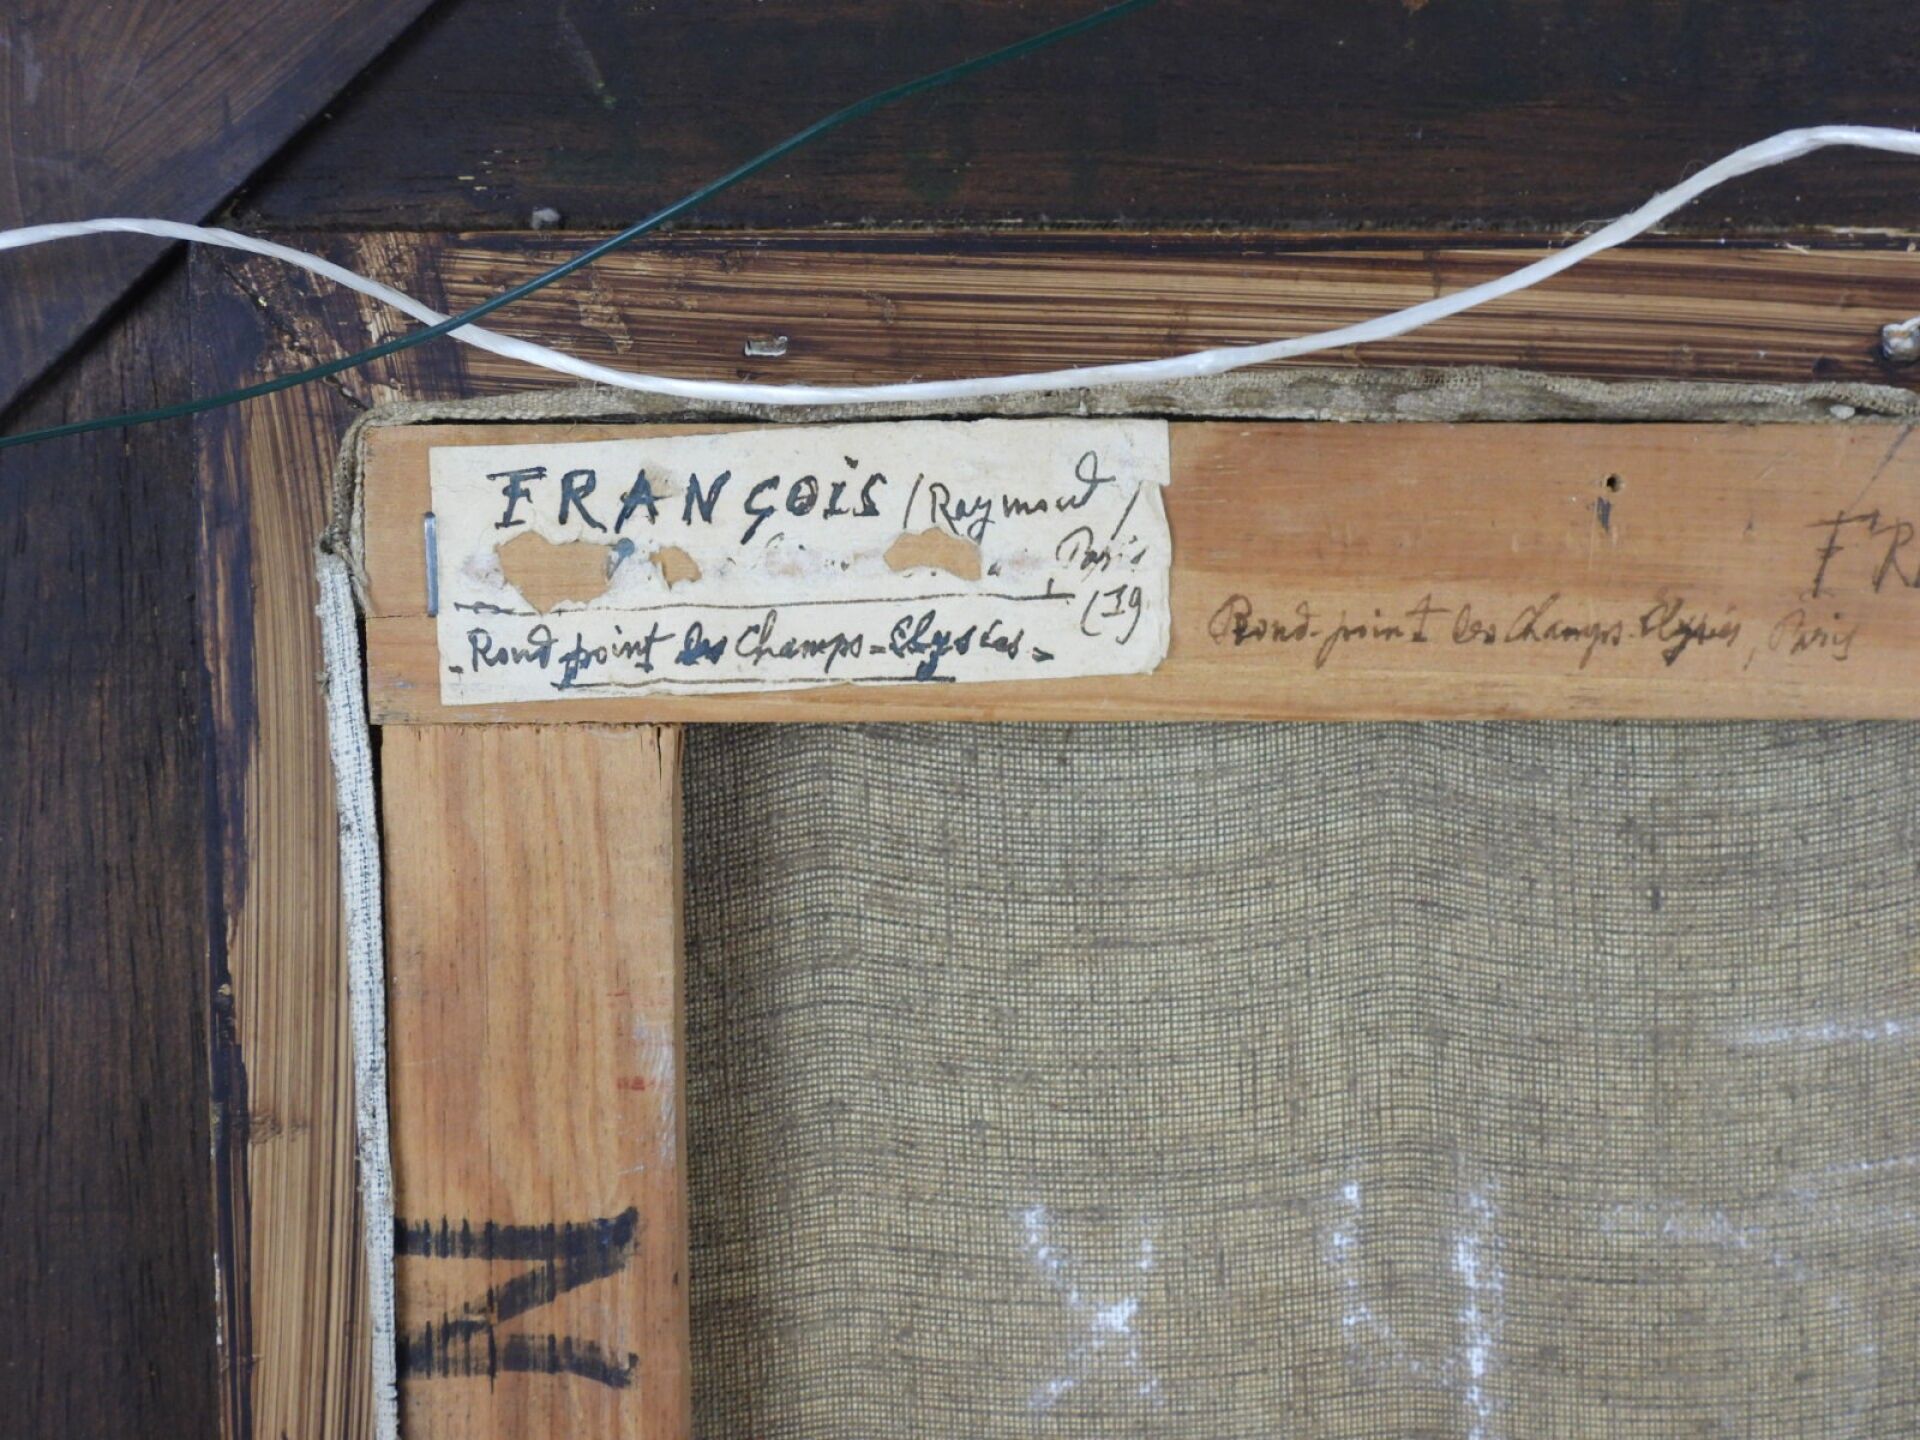 FRANÇOIS (Raymond)
Paris
(19
- Rond point des Champs-Elysées -
FR
Rond-point des Champs-Elysées, Paris
N